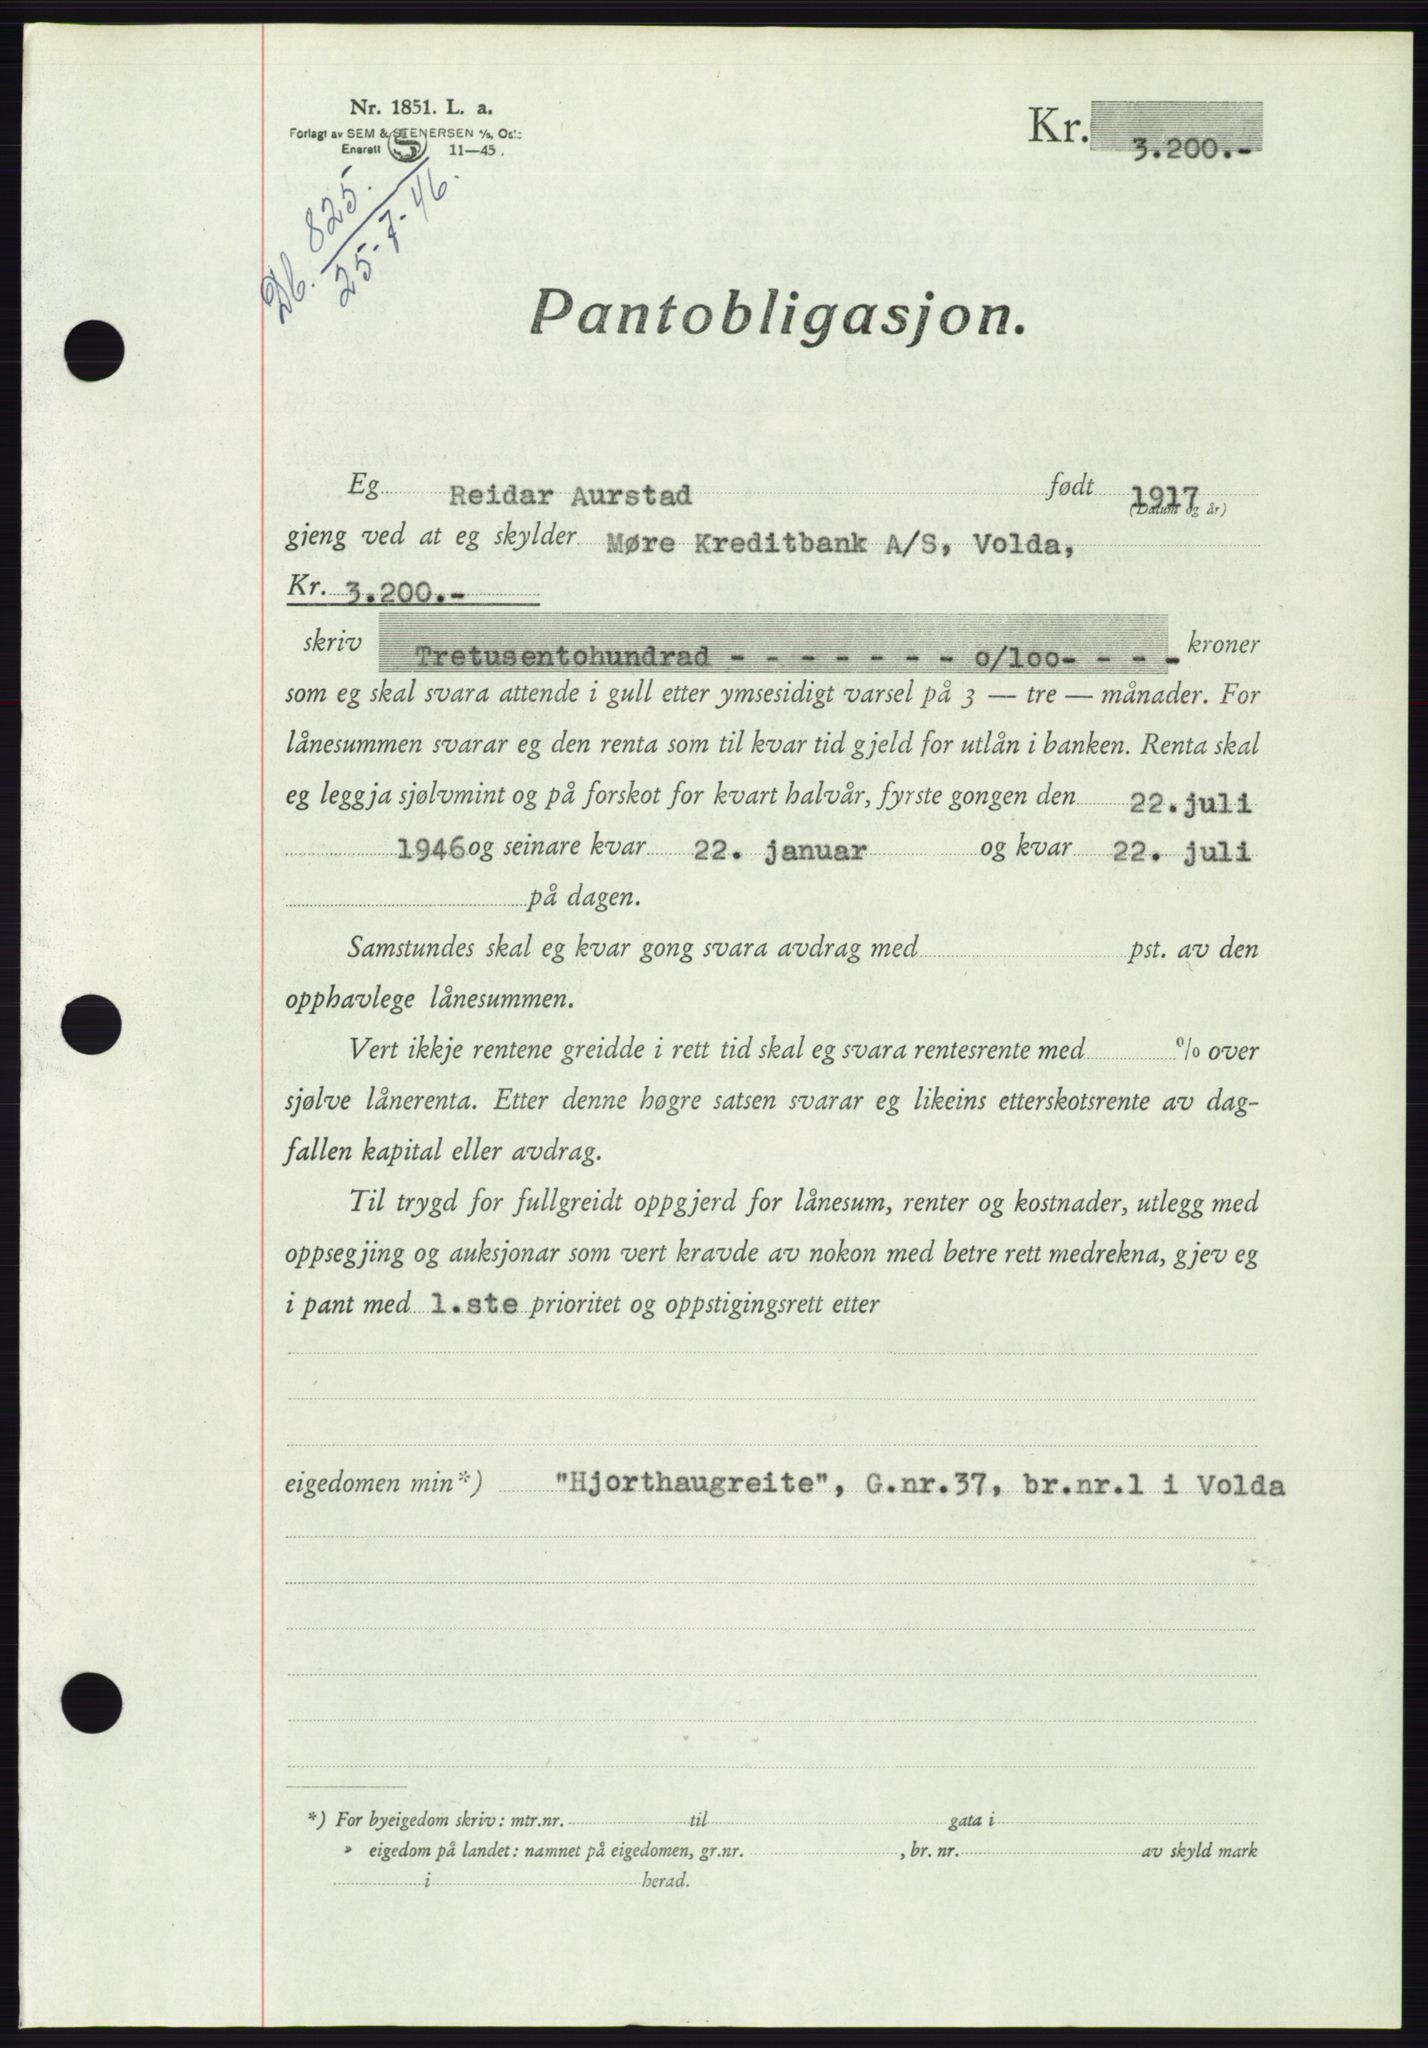 Nr. 1851. L. a.
Forlagt av SEM & STENERSEN A/S, Oslo
Enerett 11—45.
Kr. 3.200.-
Db. 825.
25-7-46.
Pantobligasjon.
Eg Reidar Aurstad født 1917
(Datum og år)
gjeng ved at eg skylder Møre Kreditbank A/S, Volda,
Kr. 3.200.-
skriv Tretusentohundrad - - - - - - - 0/100- - - - kroner
som eg skal svara attende i gull etter ymsesidigt varsel på 3 — tre — månader. For
lånesummen svarar eg den renta som til kvar tid gjeld for utlån i banken. Renta skal
eg leggja sjølvmint og på forskot for kvart halvår, fyrste gongen den 22. juli
1946 og seinare kvar 22. januar og kvar 22. juli
på dagen.
Samstundes skal eg kvar gong svara avdrag med pst. av den
opphavlege lånesummen.
Vert ikkje rentene greidde i rett tid skal eg svara rentesrente med % over
sjølve lånerenta. Etter denne høgre satsen svarar eg likeins etterskotsrente av dag-
fallen kapital eller avdrag.
Til trygd for fullgreidt oppgjerd for lånesum, renter og kostnader, utlegg med
oppsegjing og auksjonar som vert kravde av nokon med betre rett medrekna, gjev eg
i pant med 1.ste prioritet og oppstigingsrett etter
eigedomen min*) "Hjorthaugreite", G.nr.37, br.nr.1 i Volda
*) For byeigedom skriv: mtr.nr. til gata i
» eigedom på landet: namnet på eigedomen, gr.nr. , br. nr. av skyld mark
i herad.